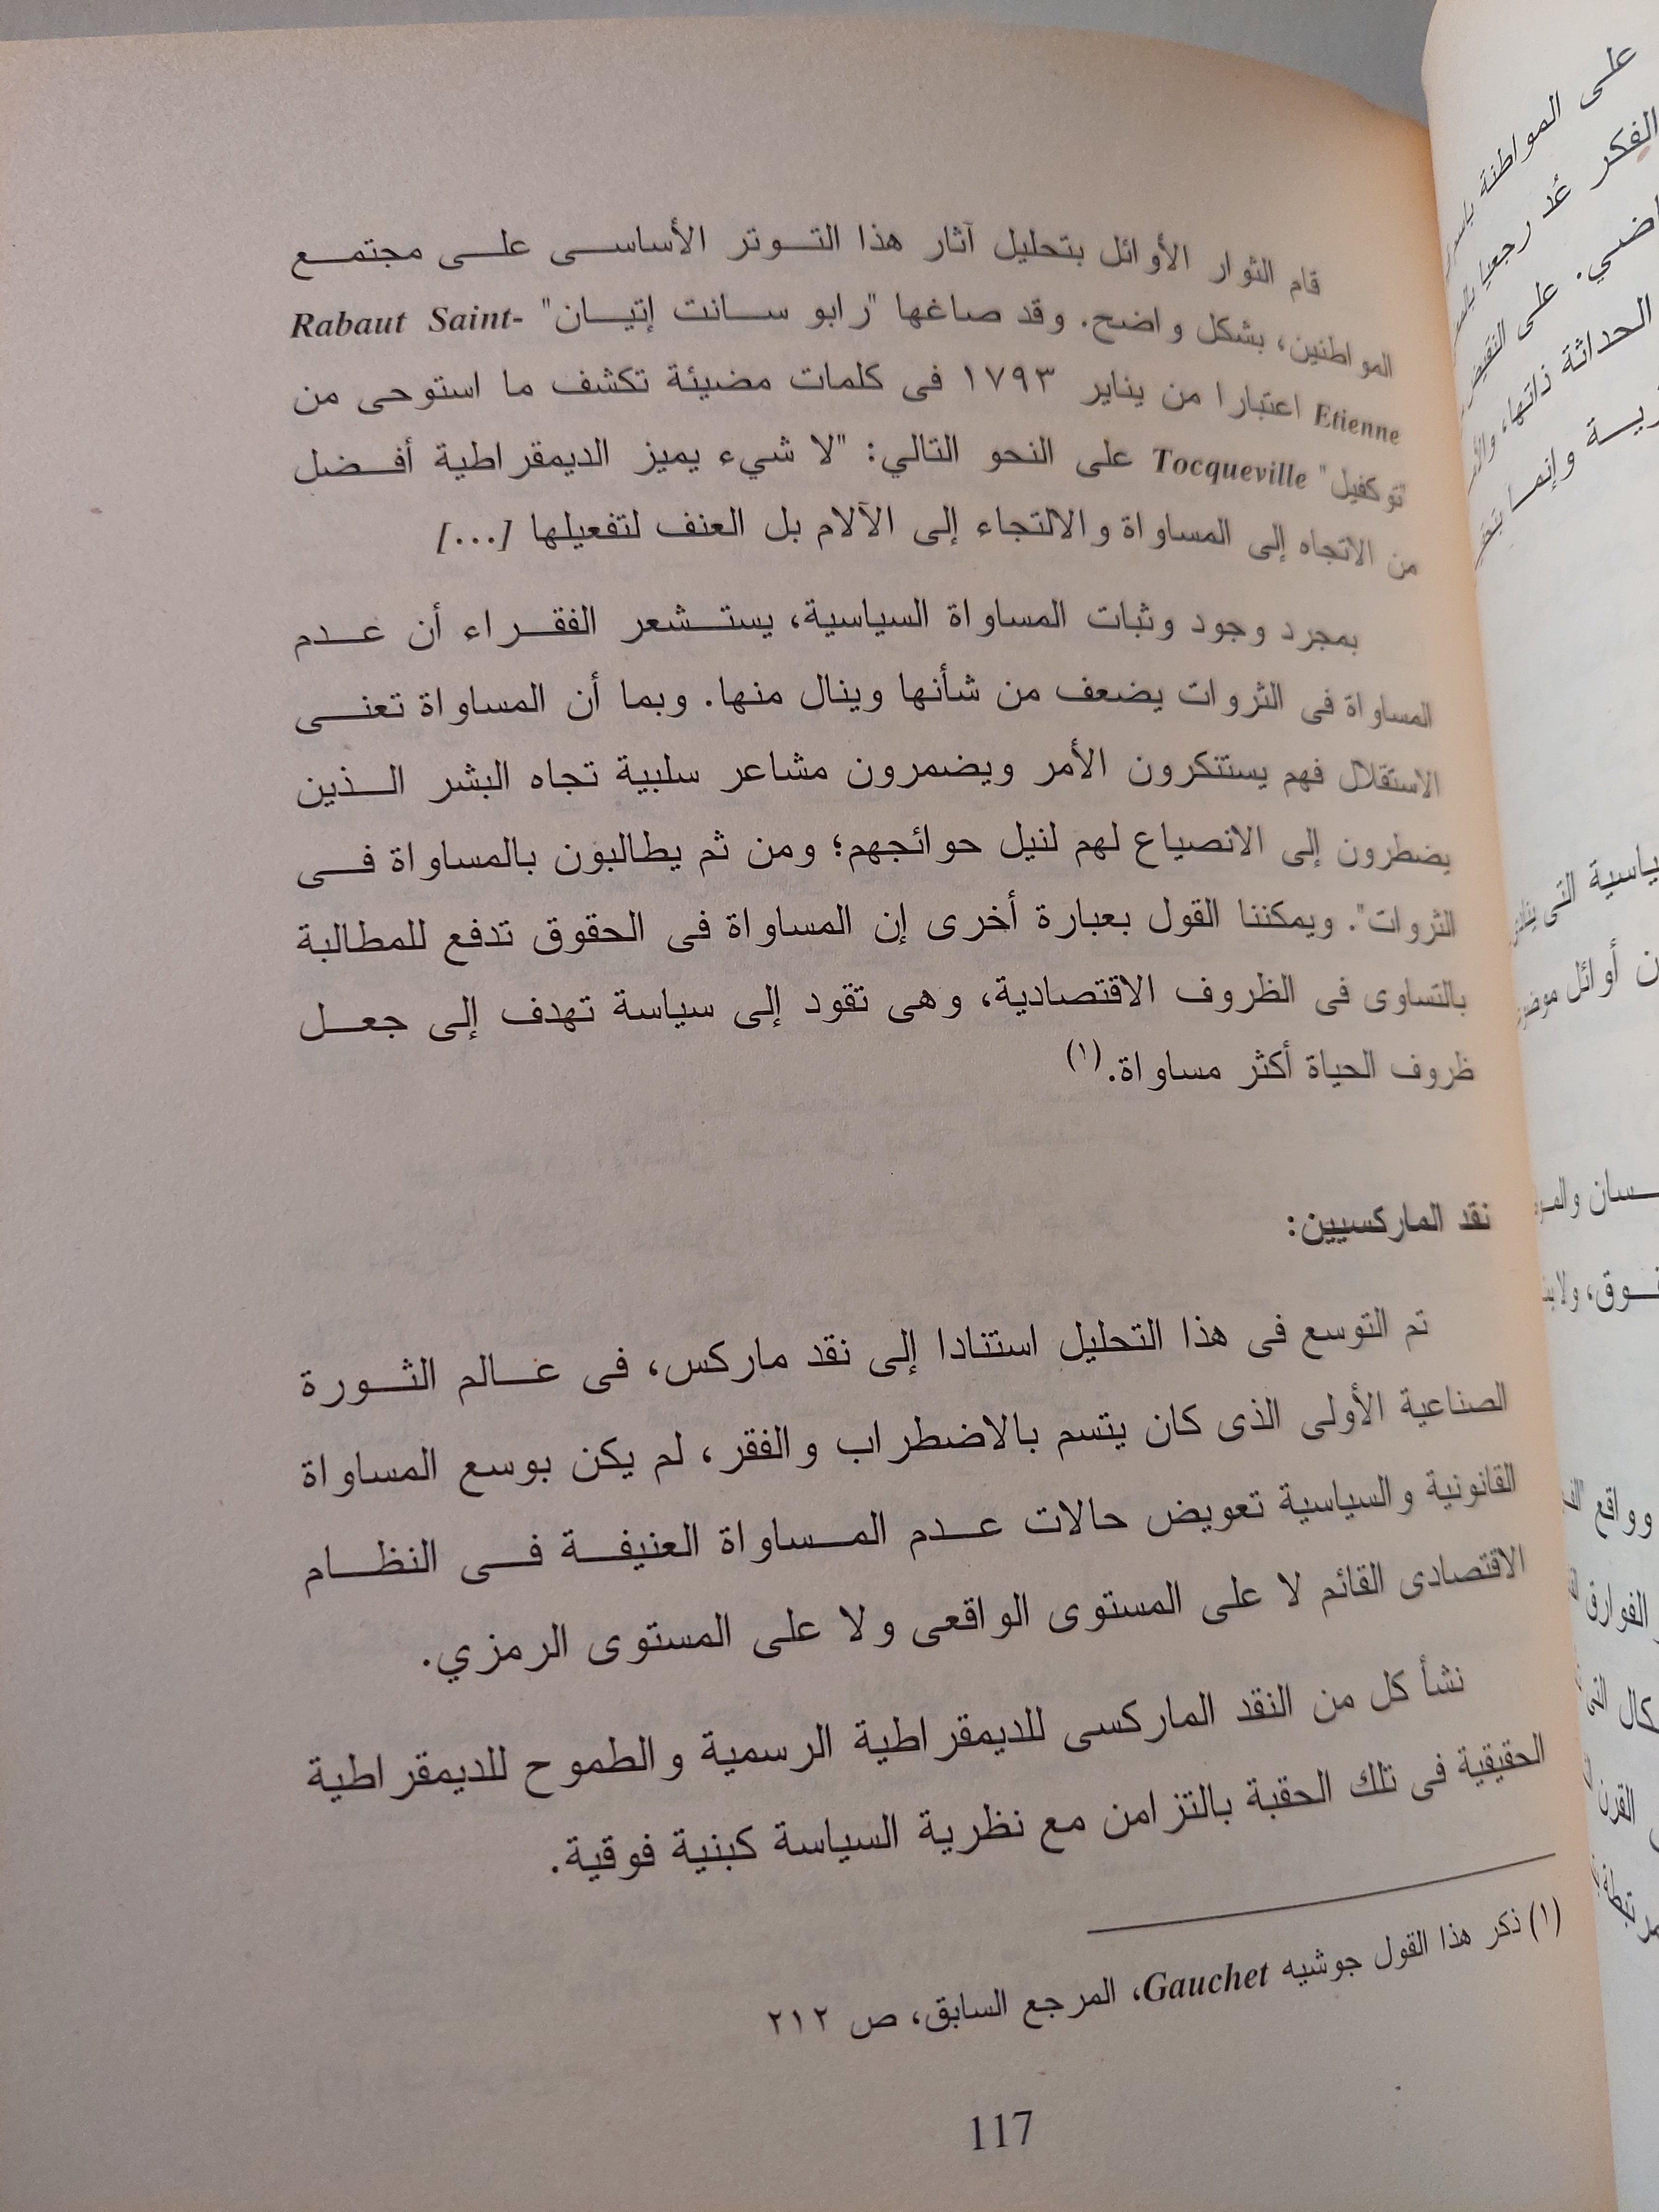 قام الثوار الأوائل بتحليل آثار هذا التوتر الأساسى على مجتمع
المواطنين، بشكل واضح. وقد صاغها "رابو سانت إتيان" Rabaut Saint-
Etienne اعتبارا من يناير ١٧٩٣ فى كلمات مضيئة تكشف ما استوحى من
"توكفيل" Tocqueville على النحو التالي: "لا شيء يميز الديمقراطية أفضل
من الاتجاه إلى المساواة والالتجاء إلى الآلام بل العنف لتفعيلها [...]
بمجرد وجود وثبات المساواة السياسية، يستشعر الفقراء أن عدم
المساواة فى الثروات يضعف من شأنها وينال منها. وبما أن المساواة تعنى
الاستقلال فهم يستنكرون الأمر ويضمرون مشاعر سلبية تجاه البشر الذين
يضطرون إلى الانصياع لهم لنيل حوائجهم؛ ومن ثم يطالبون بالمساواة فى
الثروات". ويمكننا القول بعبارة أخرى إن المساواة فى الحقوق تدفع للمطالبة
بالتساوى فى الظروف الاقتصادية، وهى تقود إلى سياسة تهدف إلى جعل
ظروف الحياة أكثر مساواة.(١)
نقد الماركسيين:
تم التوسع فى هذا التحليل استنادا إلى نقد ماركس، فى عالم الثورة
الصناعية الأولى الذى كان يتسم بالاضطراب والفقر، لم يكن بوسع المساواة
القانونية والسياسية تعويض حالات عدم المساواة العنيفة فى النظام
الاقتصادى القائم لا على المستوى الواقعى ولا على المستوى الرمزي.
نشأ كل من النقد الماركسى للديمقراطية الرسمية والطموح للديمقراطية
الحقيقية فى تلك الحقبة بالتزامن مع نظرية السياسة كبنية فوقية.
(١) ذكر هذا القول جوشيه Gauchet، المرجع السابق، ص ٢١٢
117
على المواطنة
الفكر عُد رجعيا
على
الحداثة ذاتها،
وإنما
التى
أوائل
وواقع
الفوارق
القرن